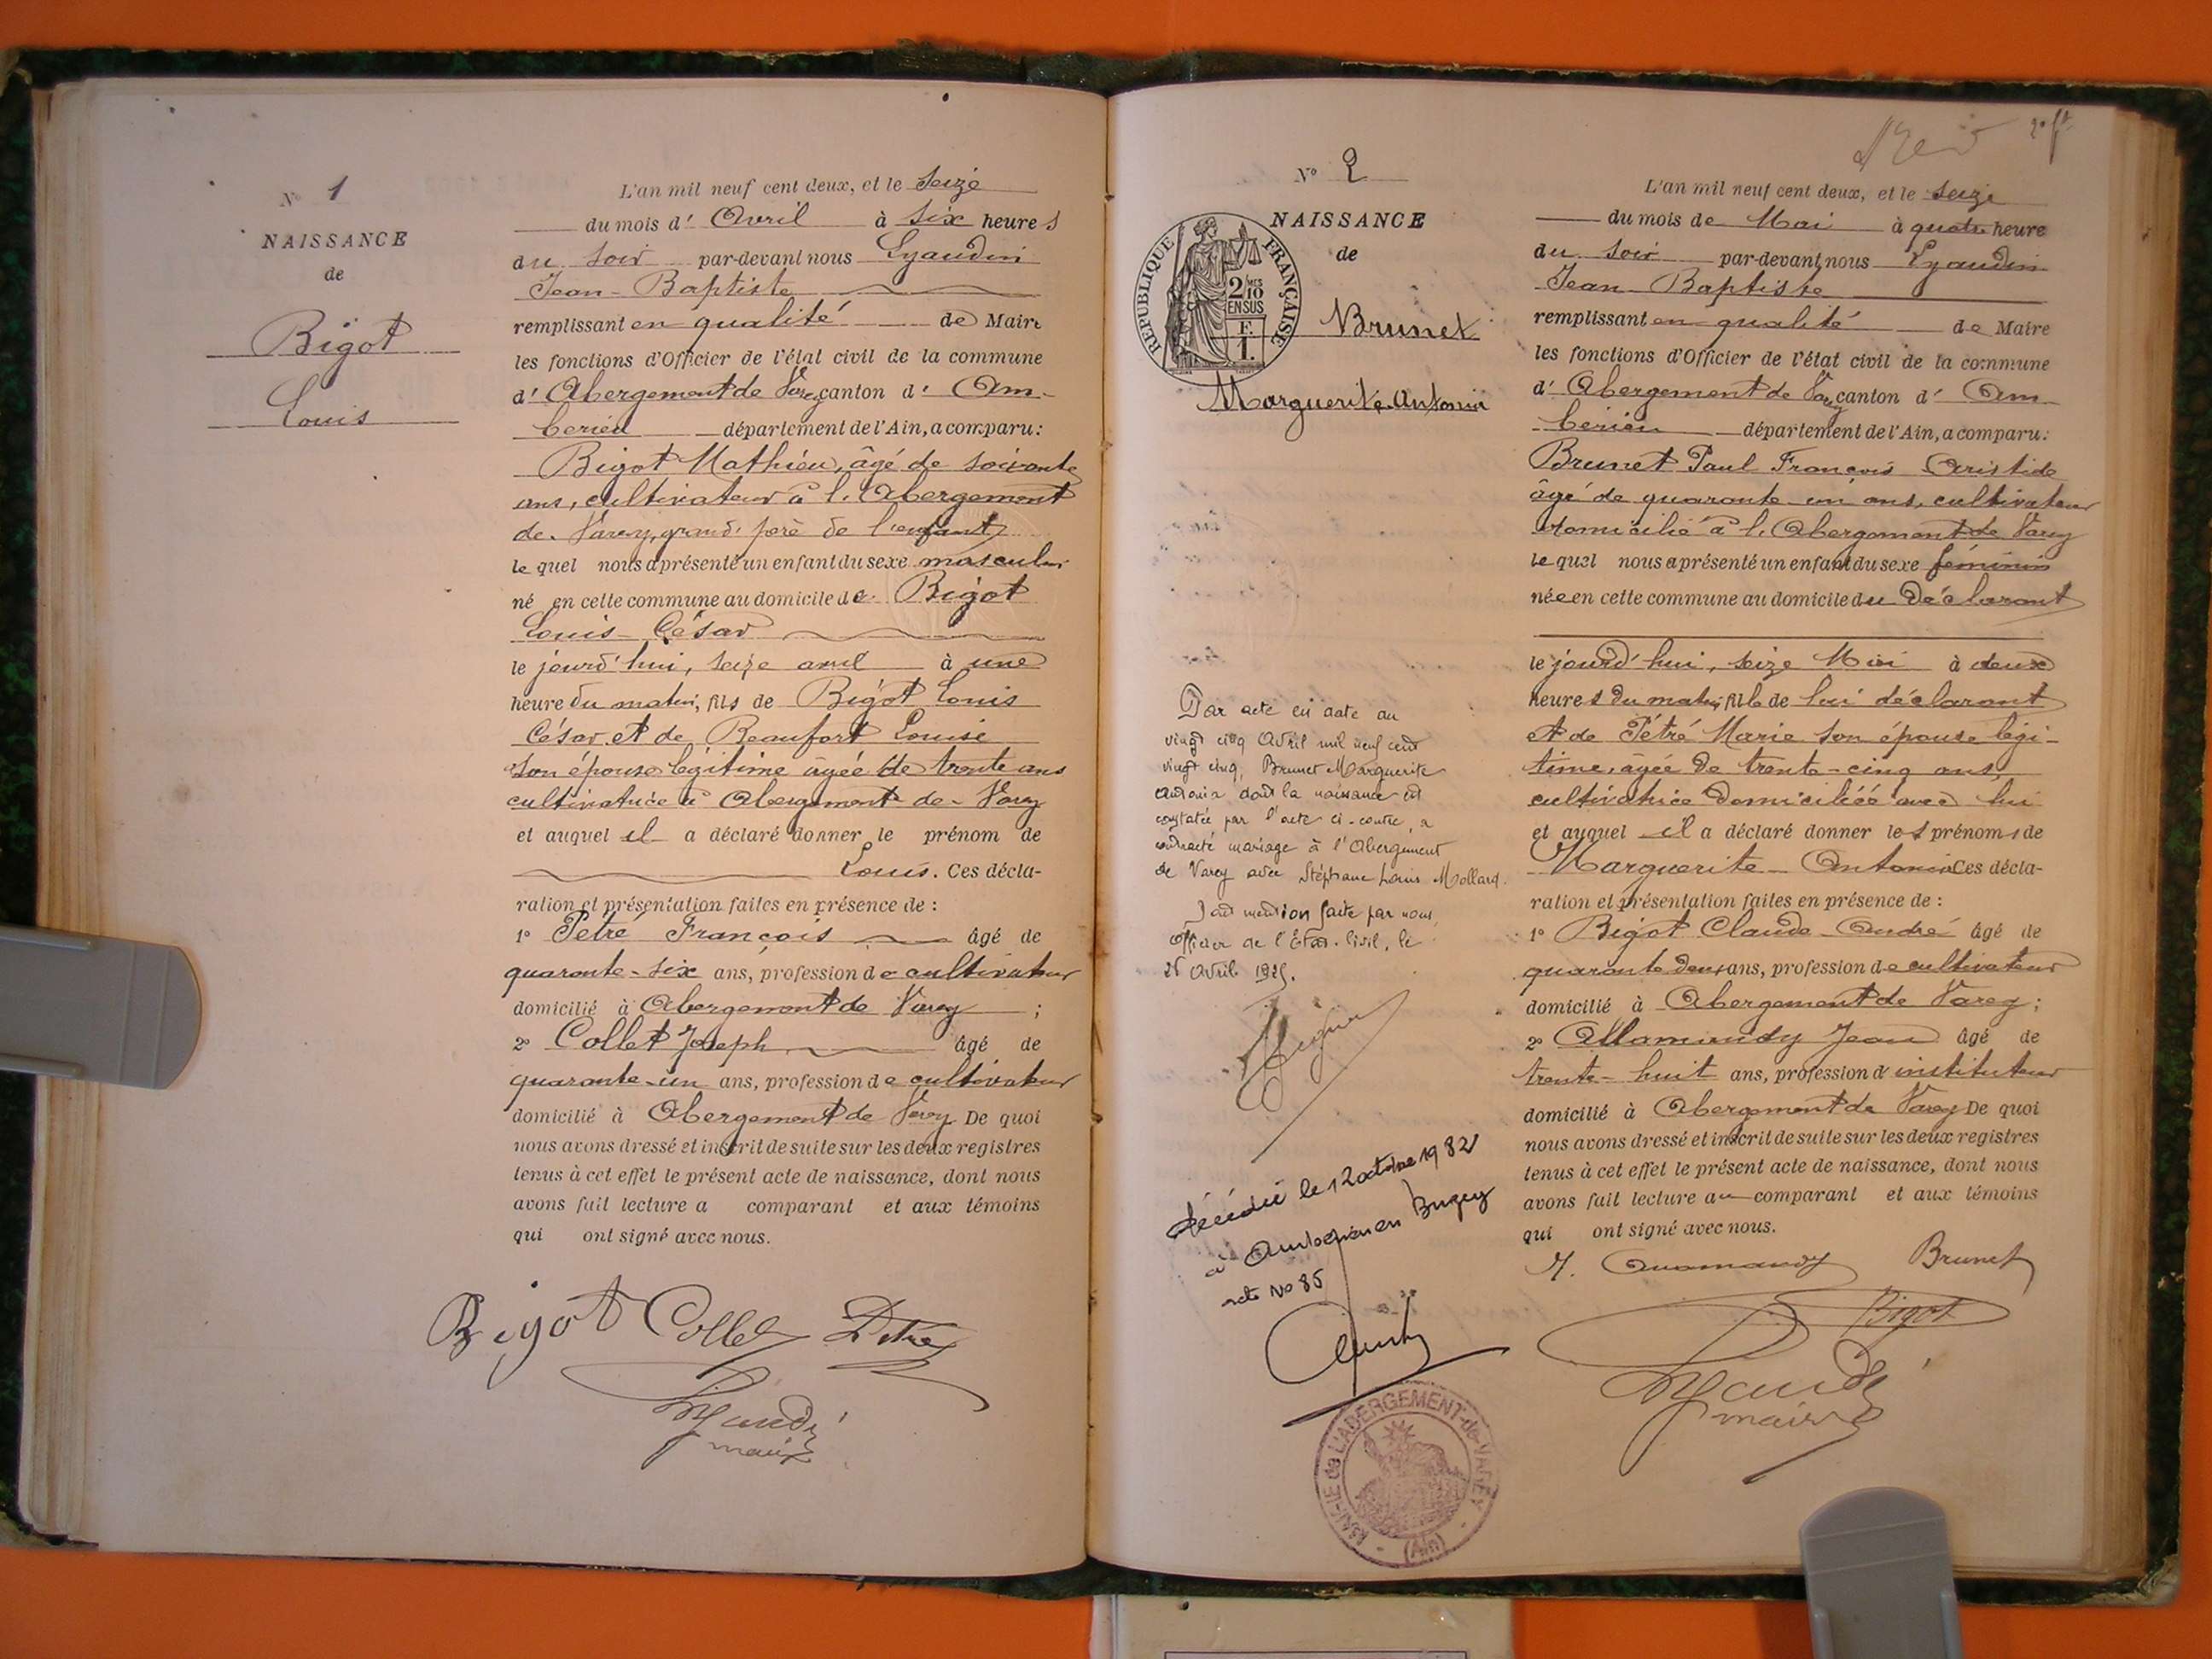 N° 1
NAISSANCE
de
Bigot
Louis
L'an mil neuf cent deux, et le seize
du mois d' Avril à six heures
du soir par-devant nous Lyaudin
Jean-Baptiste
remplissant en qualité de Maire
les fonctions d'Officier de l'état civil de la commune
d' Abergement de Varey canton d' Am-
berieu département de l'Ain, a comparu:
Bigot Mathieu, âgé de soixante
ans, cultivateur à l'Abergement
de Varey, grand père de l'enfant
lequel nous a présenté un enfant du sexe masculin
né en cette commune au domicile de Bigot
Louis-César
le jourd'hui, seize avril à une
heure du matin, fils de Bigot Louis
César et de Beaufort Louise
son épouse légitime âgée de trente ans
cultivatrice à Abergement de Varey
et auquel il a déclaré donner le prénom de
Louis. Ces décla-
ration et présentation faites en présence de :
1° Pétré François âgé de
quarante-six ans, profession de cultivateur
domicilié à Abergement de Varey ;
2° Collet Joseph âgé de
quarante-un ans, profession de cultivateur
domicilié à Abergement de Varey De quoi
nous avons dressé et inscrit de suite sur les deux registres
tenus à cet effet le présent acte de naissance, dont nous
avons fait lecture a comparant et aux témoins
qui ont signé avec nous.
Bigot Collet Pétré
Lyaudin
maire
N° 2
NAISSANCE
de
RÉPUBLIQUE FRANÇAISE
2/10 MES
EN SUS
F.
1.
Brunet
Marguerite-Antonia
Par acte en date du
vingt cinq Avril mil neuf cent
vingt cinq, Brunet Marguerite
Antonia dont la naissance est
constatée par l'acte ci-contre, a
contracté mariage à l'Abergement
de Varey avec Stéphane Louis Mollard.
Dont mention faite par nous,
officier de l'État-Civil, le
25 Avril 1925.
décédée le 12 octobre 1982
à Ambérieu en Bugey
acte No 85
MAIRIE de L'ABERGEMENT-de-VAREY
(Ain)
2e ft
L'an mil neuf cent deux, et le seize
du mois de Mai à quatre heure
du soir par-devant nous Lyaudin
Jean-Baptiste
remplissant en qualité de Maire
les fonctions d'Officier de l'état civil de la commune
d' Abergement de Varey canton d' Am-
berieu département de l'Ain, a comparu:
Brunet Paul François Aristide
âgé de quarante-un ans, cultivateur
domicilié à l'Abergement de Varey
lequel nous a présenté un enfant du sexe féminin
née en cette commune au domicile du déclarant
le jourd'hui, seize Mai à deux
heures du matin, fille de lui déclarant
et de Pétré Marie son épouse légi-
time, âgée de trente-cinq ans,
cultivatrice domiciliée avec lui
et auquel il a déclaré donner les prénoms de
Marguerite-Antonia Ces décla-
ration et présentation faites en présence de :
1° Bigot Claude-André âgé de
quarante deux ans, profession de cultivateur
domicilié à Abergement de Varey ;
2° Allamandy Jean âgé de
trente-huit ans, profession d'instituteur
domicilié à Abergement de Varey De quoi
nous avons dressé et inscrit de suite sur les deux registres
tenus à cet effet le présent acte de naissance, dont nous
avons fait lecture au comparant et aux témoins
qui ont signé avec nous.
Brunet
Bigot
Lyaudin
maire